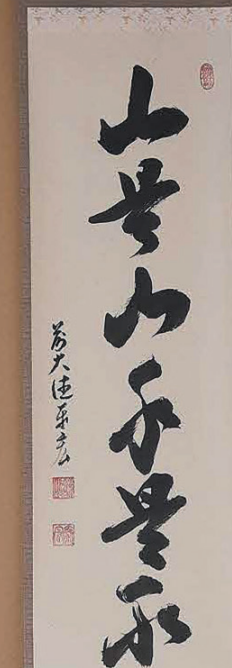 山是山水是水
前大徳平宏